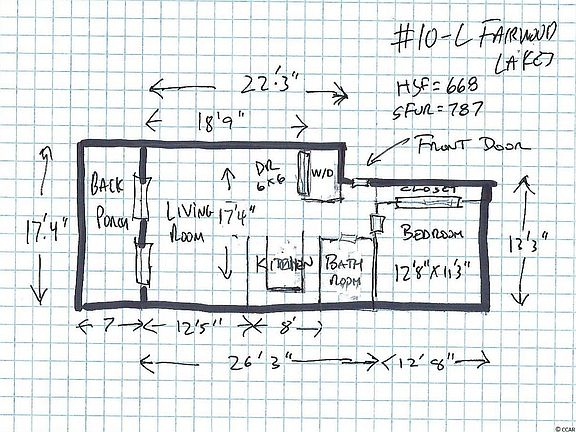 #10-L FAIRWOOD
LAKES
HSF = 668
SFUR = 787
FRONT DOOR
22'3"
18'9"
DR
6x6
W/D
CLOSET
BACK
PORCH
LIVING
ROOM
17'4"
17'4"
KITCHEN
BATH
ROOM
BEDROOM
12'8" x 11'3"
13'3"
7
12'5"
8'
26'3"
12'8"
© CCAR